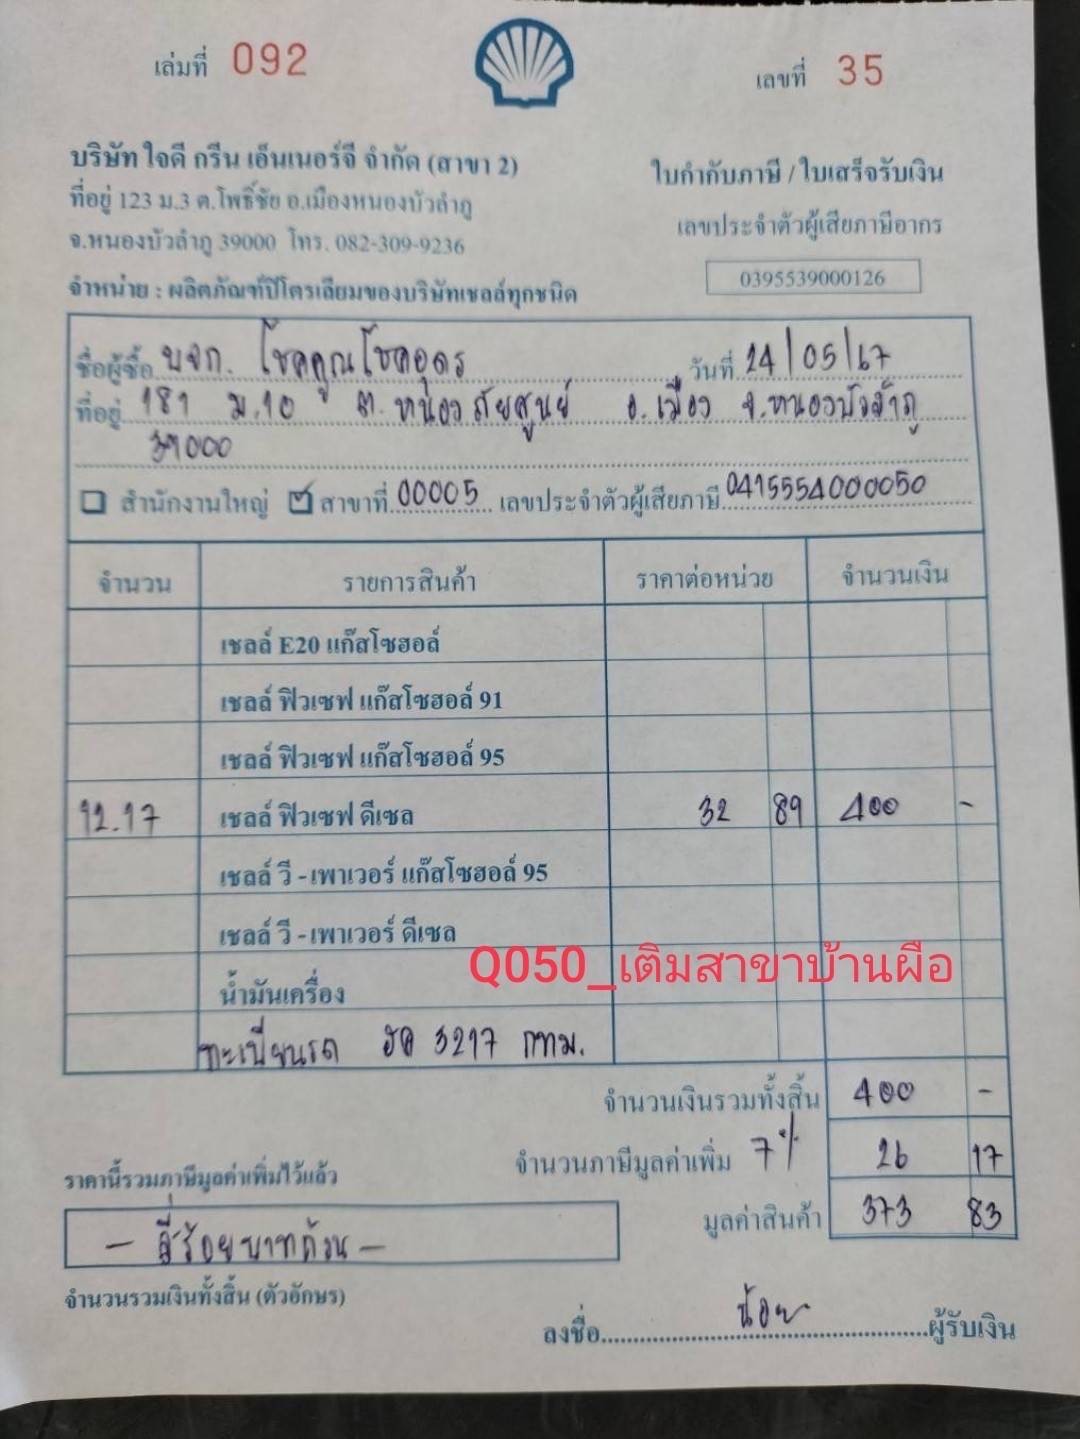 เล่มที่ 092
เลขที่ 35
บริษัท ใจดี กรีน เอ็นเนอร์จี จำกัด (สาขา 2)
ที่อยู่ 123 ม.3 ต.โพธิ์ชัย อ.เมืองหนองบัวลำภู
จ.หนองบัวลำภู 39000 โทร. 082-309-9236
จำหน่าย : ผลิตภัณฑ์ปิโตรเลียมของบริษัทเชลล์ทุกชนิด
ใบกำกับภาษี / ใบเสร็จรับเงิน
เลขประจำตัวผู้เสียภาษีอากร
0395539000126
ชื่อผู้ซื้อ บจก. โชคคูณโชคอุดร วันที่ 24/05/67
ที่อยู่ 181 ม.10 ต.หนองภัยศูนย์ อ.เมือง จ.หนองบัวลำภู
39000
สำนักงานใหญ่ สาขาที่ 00005 เลขประจำตัวผู้เสียภาษี 0415554000050
จำนวน รายการสินค้า ราคาต่อหน่วย จำนวนเงิน
เชลล์ E20 แก๊สโซฮอล์
เชลล์ ฟิวเซฟ แก๊สโซฮอล์ 91
เชลล์ ฟิวเซฟ แก๊สโซฮอล์ 95
12.17 เชลล์ ฟิวเซฟ ดีเซล 32 89 400 -
เชลล์ วี - เพาเวอร์ แก๊สโซฮอล์ 95
เชลล์ วี - เพาเวอร์ ดีเซล
Q050_เติมสาขาบ้านผือ
น้ำมันเครื่อง
ทะเบียนรถ ฮค 3217 กทม.
จำนวนเงินรวมทั้งสิ้น 400 -
จำนวนภาษีมูลค่าเพิ่ม 7% 26 17
ราคานี้รวมภาษีมูลค่าเพิ่มไว้แล้ว
มูลค่าสินค้า 373 83
- สี่ร้อยบาทถ้วน -
จำนวนรวมเงินทั้งสิ้น (ตัวอักษร)
ลงชื่อ น้อย ผู้รับเงิน